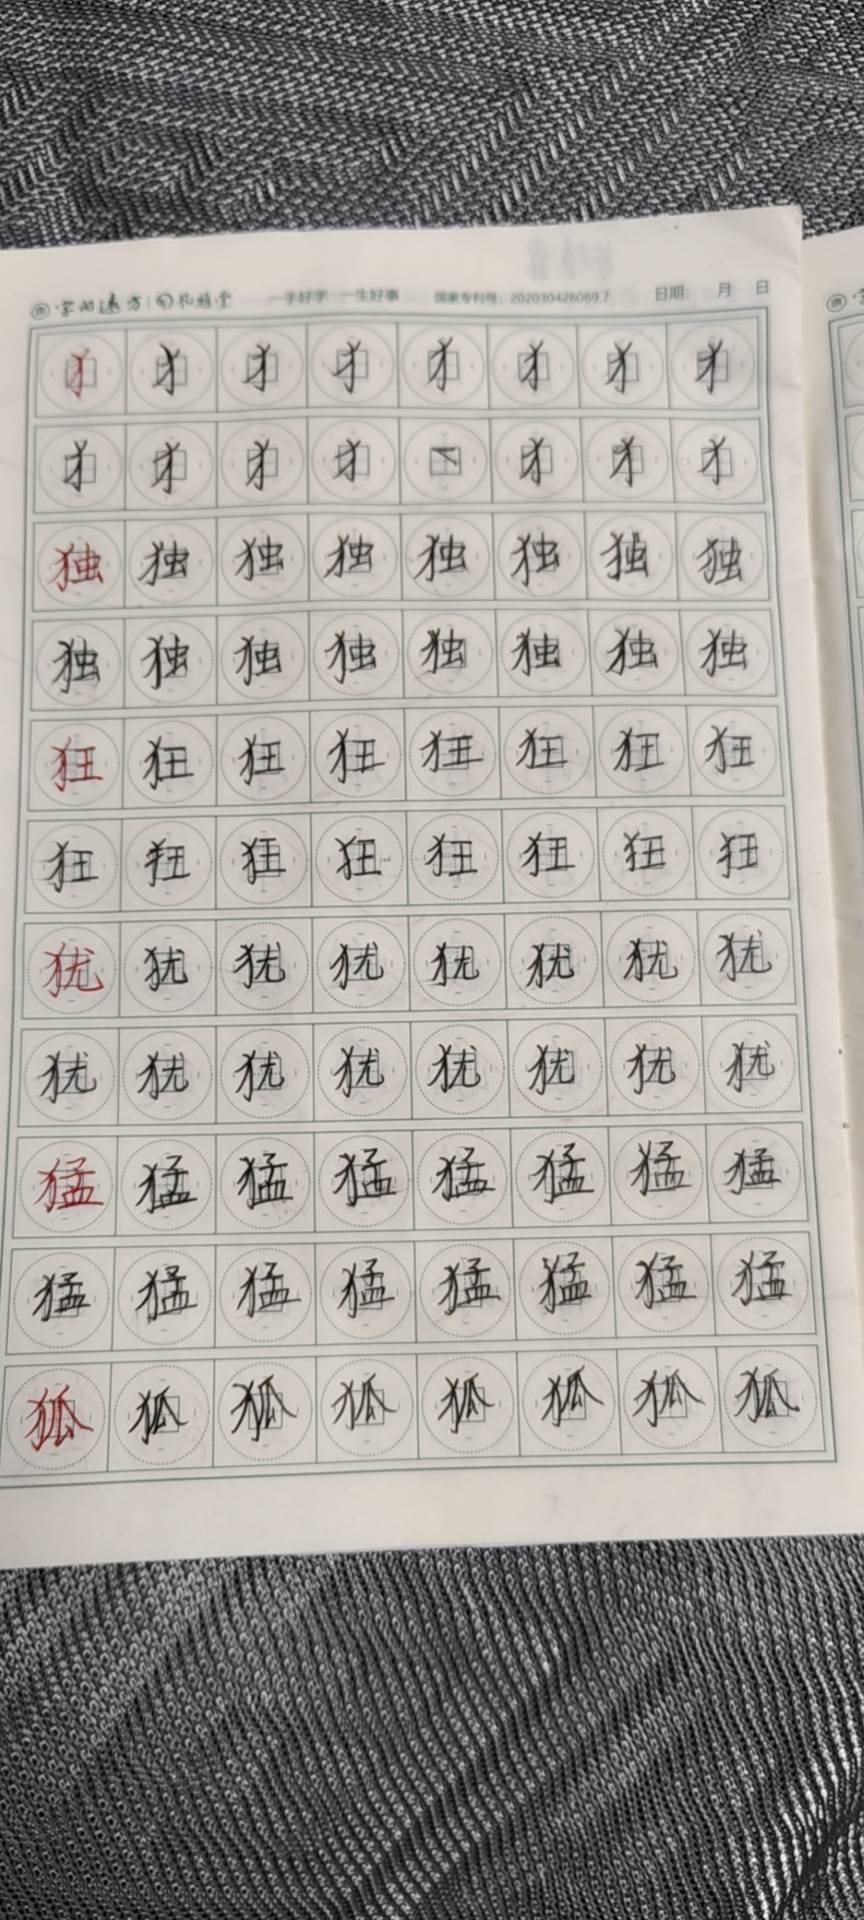 字的远方 一手好字·一生好事 国家专利号：202030426069.7 日期： 月 日
犭 犭 犭 犭 犭 犭 犭 犭
犭 犭 犭 犭 犭 犭 犭
独 独 独 独 独 独 独 独
独 独 独 独 独 独 独 独
狂 狂 狂 狂 狂 狂 狂 狂
狂 狂 狂 狂 狂 狂 狂 狂
犹 犹 犹 犹 犹 犹 犹 犹
犹 犹 犹 犹 犹 犹 犹 犹
猛 猛 猛 猛 猛 猛 猛 猛
猛 猛 猛 猛 猛 猛 猛 猛
狐 狐 狐 狐 狐 狐 狐 狐